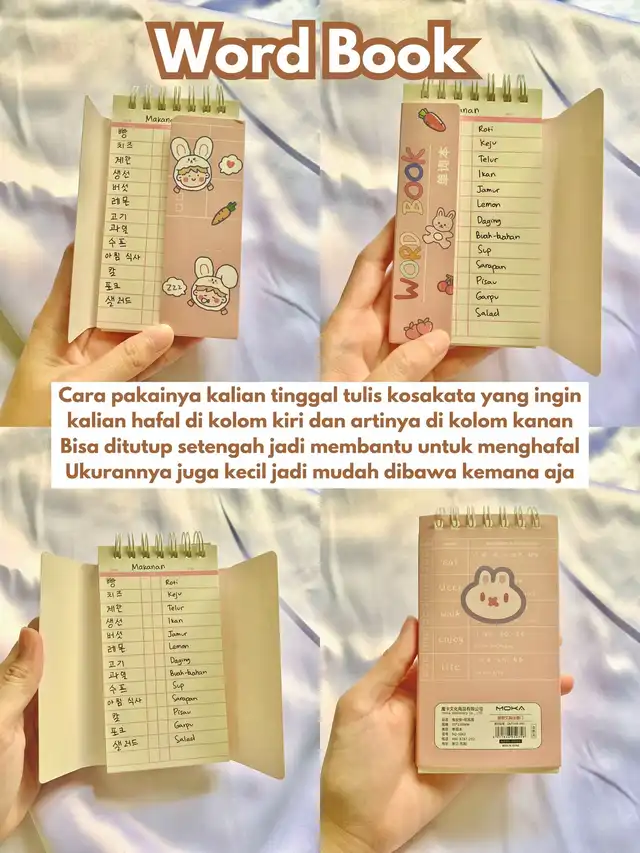 Word Book
Makanan
빵
치즈
계란
생선
버섯
레몬
고기
과일
수프
아침 식사
칼
포크
샐러드
zzz
WORD BOOK
单词本
Roti
Keju
Telur
Ikan
Jamur
Lemon
Daging
Buah-buahan
Sup
Sarapan
Pisau
Garpu
Salad
Cara pakainya kalian tinggal tulis kosakata yang ingin
kalian hafal di kolom kiri dan artinya di kolom kanan
Bisa ditutup setengah jadi membantu untuk menghafal
Ukurannya juga kecil jadi mudah dibawa kemana aja
Makanan
빵 Roti
치즈 Keju
계란 Telur
생선 Ikan
버섯 Jamur
레몬 Lemon
고기 Daging
과일 Buah-buahan
수프 Sup
아침 식사 Sarapan
칼 Pisau
포크 Garpu
샐러드 Salad
MOKA